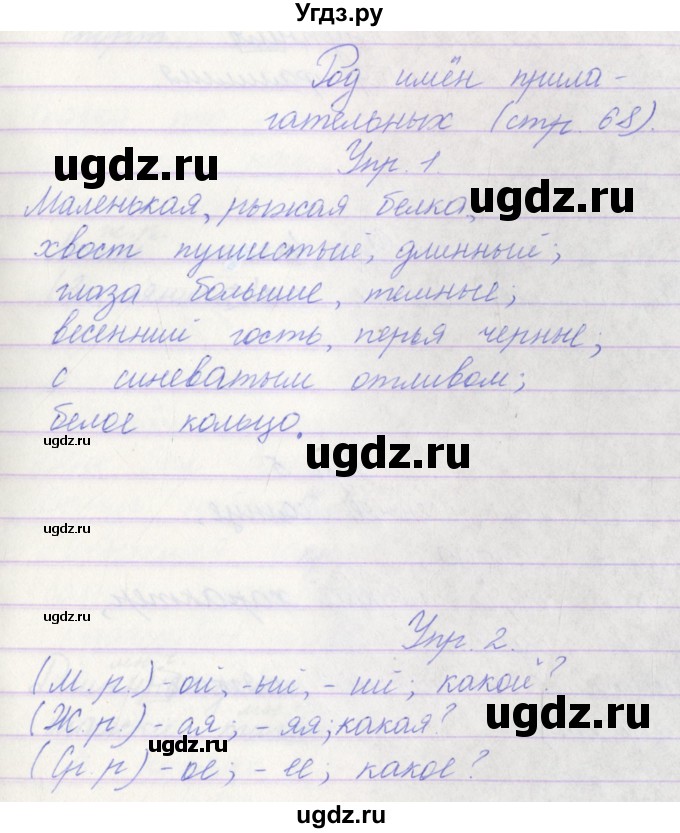 Угдз.ру
Род имён прила-
гательных (стр. 68).
Упр. 1.
ugdz.ru
ugdz.ru
Маленькая, рыжая белка,
хвост пушистый, длинный;
глаза большие, темные;
весенний гость, перья черные;
с синеватым отливом;
белое кольцо.
ugdz.ru
ugdz.ru
ugdz.ru
ugdz.ru
Упр. 2.
(М.р.) -ой; -ый, - ий; какой?
(Ж.р.) - ая; - яя; какая?
ugdz.ru
ugdz.ru
(Ср.р) - ое; - ее; какое?
ugdz.ru